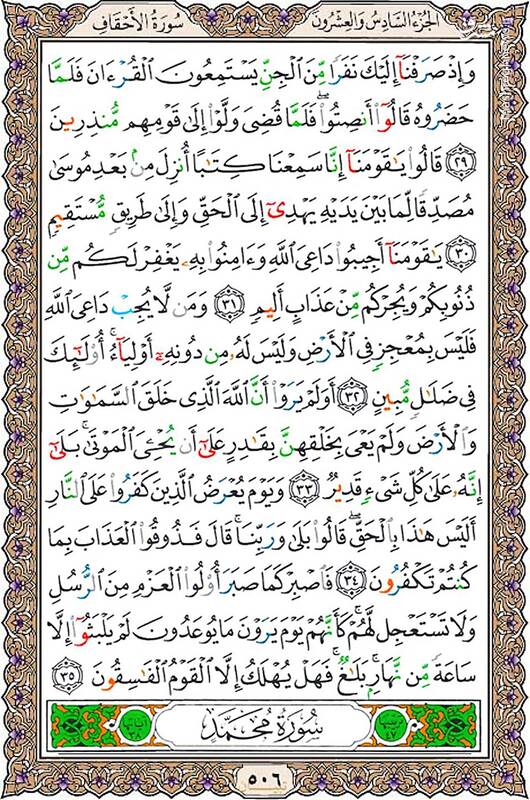 الجزء السادس والعشرون سورة الأحقاف
وَإِذْ صَرَفْنَآ إِلَيْكَ نَفَرًا مِّنَ ٱلْجِنِّ يَسْتَمِعُونَ ٱلْقُرْءَانَ فَلَمَّا
حَضَرُوهُ قَالُوٓا۟ أَنصِتُوا۟ ۖ فَلَمَّا قُضِىَ وَلَّوْا۟ إِلَىٰ قَوْمِهِم مُّنذِرِينَ
٢٩ قَالُوا۟ يَٰقَوْمَنَآ إِنَّا سَمِعْنَا كِتَٰبًا أُنزِلَ مِنۢ بَعْدِ مُوسَىٰ
مُصَدِّقًا لِّمَا بَيْنَ يَدَيْهِ يَهْدِىٓ إِلَى ٱلْحَقِّ وَإِلَىٰ طَرِيقٍ مُّسْتَقِيمٍ
٣٠ يَٰقَوْمَنَآ أَجِيبُوا۟ دَاعِىَ ٱللَّهِ وَءَامِنُوا۟ بِهِۦ يَغْفِرْ لَكُم مِّن
ذُنُوبِكُمْ وَيُجِرْكُم مِّنْ عَذَابٍ أَلِيمٍ ٣١ وَمَن لَّا يُجِبْ دَاعِىَ ٱللَّهِ
فَلَيْسَ بِمُعْجِزٍ فِى ٱلْأَرْضِ وَلَيْسَ لَهُۥ مِن دُونِهِۦٓ أَوْلِيَآءُ ۚ أُو۟لَٰٓئِكَ
فِى ضَلَٰلٍ مُّبِينٍ ٣٢ أَوَلَمْ يَرَوْا۟ أَنَّ ٱللَّهَ ٱلَّذِى خَلَقَ ٱلسَّمَٰوَٰتِ
وَٱلْأَرْضَ وَلَمْ يَعْىَ بِخَلْقِهِنَّ بِقَٰدِرٍ عَلَىٰٓ أَن يُحْـِۧىَ ٱلْمَوْتَىٰ ۚ بَلَىٰٓ
إِنَّهُۥ عَلَىٰ كُلِّ شَىْءٍ قَدِيرٌ ٣٣ وَيَوْمَ يُعْرَضُ ٱلَّذِينَ كَفَرُوا۟ عَلَى ٱلنَّارِ
أَلَيْسَ هَٰذَا بِٱلْحَقِّ ۖ قَالُوا۟ بَلَىٰ وَرَبِّنَا ۚ قَالَ فَذُوقُوا۟ ٱلْعَذَابَ بِمَا
كُنتُمْ تَكْفُرُونَ ٣٤ فَٱصْبِرْ كَمَا صَبَرَ أُو۟لُوا۟ ٱلْعَزْمِ مِنَ ٱلرُّسُلِ
وَلَا تَسْتَعْجِل لَّهُمْ ۚ كَأَنَّهُمْ يَوْمَ يَرَوْنَ مَا يُوعَدُونَ لَمْ يَلْبَثُوٓا۟ إِلَّا
سَاعَةً مِّن نَّهَارٍۭ ۚ بَلَٰغٌ ۚ فَهَلْ يُهْلَكُ إِلَّا ٱلْقَوْمُ ٱلْفَٰسِقُونَ ٣٥
ترتيبها ٤٧ سُورَةُ مُحَمَّدٍ آياتها ٣٨
٥٠٦